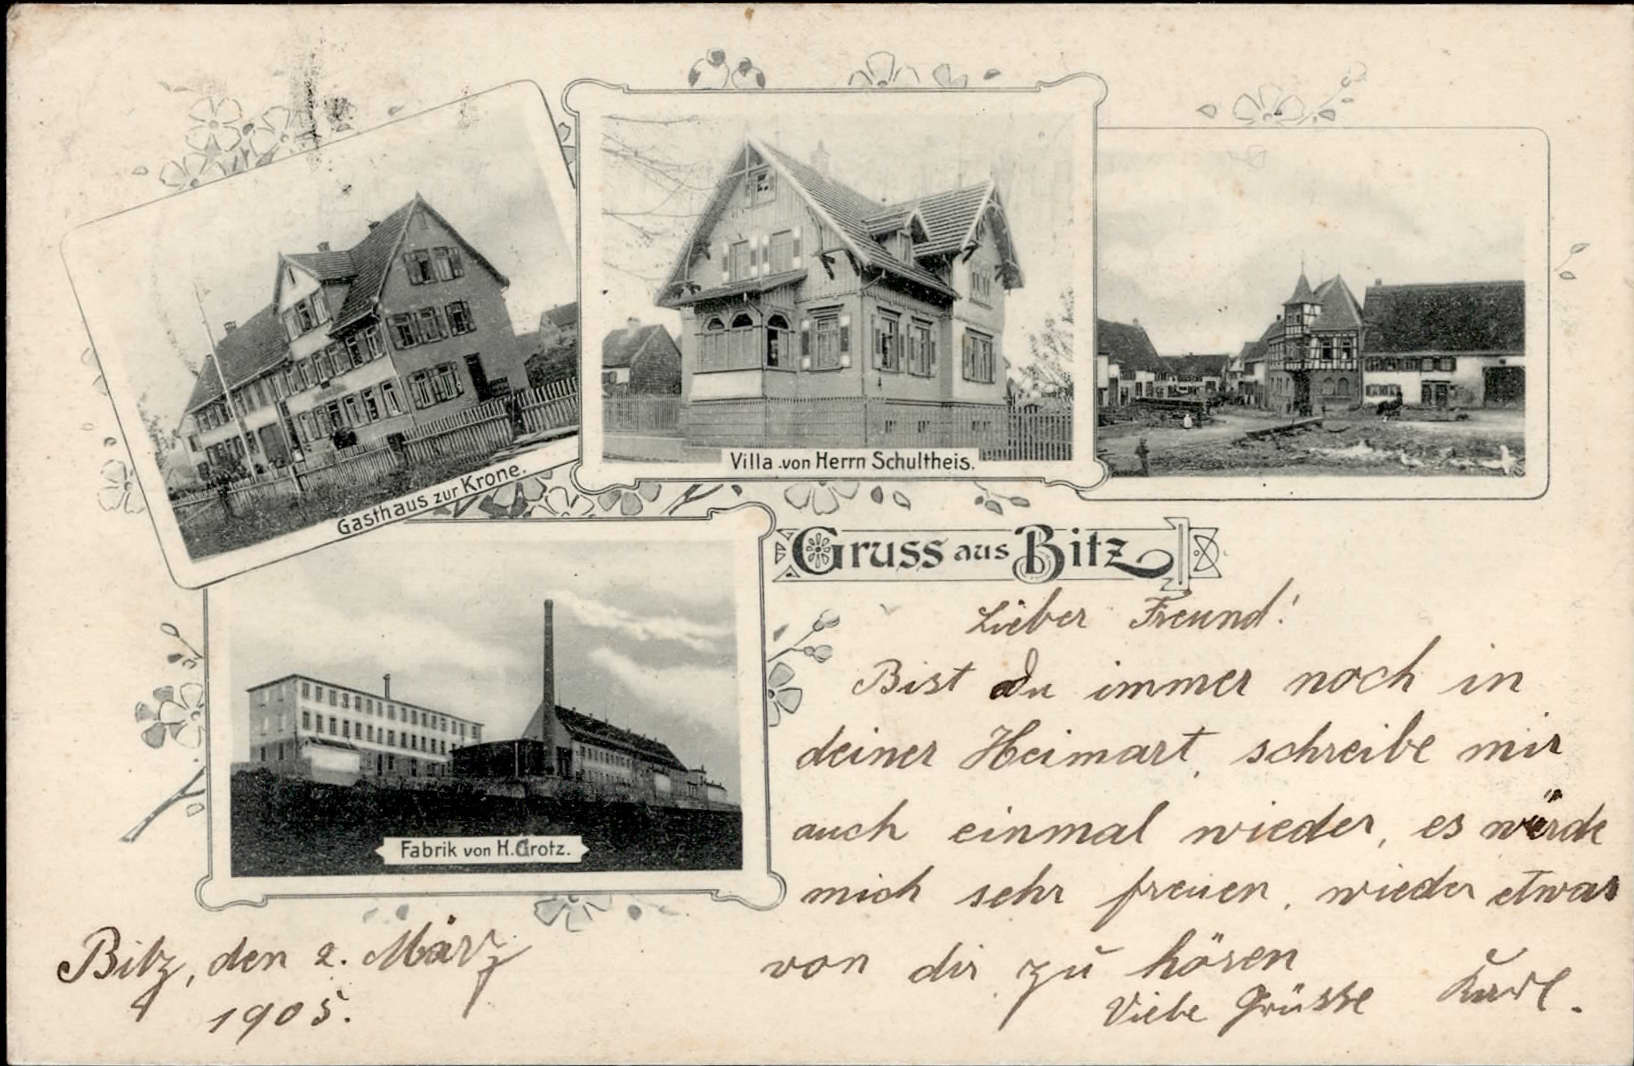 Gasthaus zur Krone.
Villa von Herrn Schultheis.
Gruss aus Bitz
Fabrik von H. Grotz.
Lieber Freund!
Bist Du immer noch in
deiner Heimart, schreibe mir
auch einmal wieder, es würde
mich sehr freuen, wieder etwas
von dir zu hören
Viele Grüsse Karl.
Bitz, den 2. März
1905.